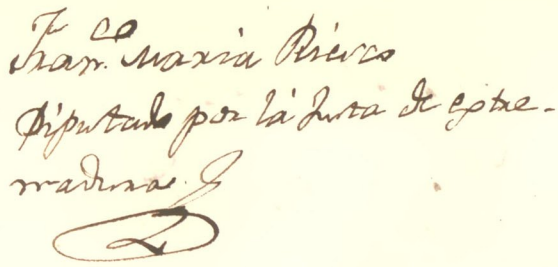 Fran.co Maria Riesco
Diputado por la Junta de extre-
madura.